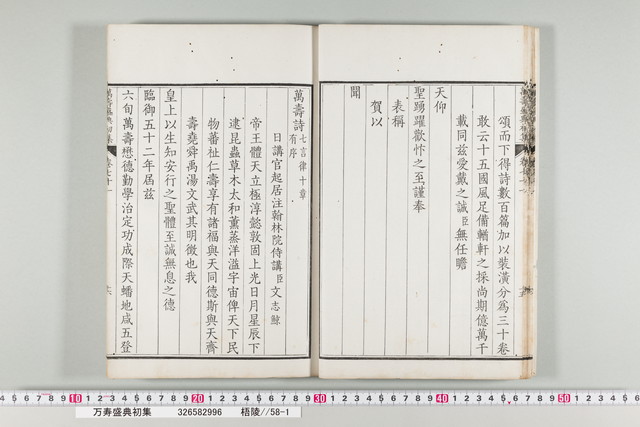 頌而下得詩數百篇加以裝潢分爲三十卷
敢云十五國風足備輶軒之採尚期億萬千
載同茲愛戴之誠臣無任瞻
天仰
聖踴躍歡忭之至謹奉
表稱
賀以
聞
萬壽詩七言律十章有序
日講官起居注翰林院侍講臣文志鯨
帝王體天立極淳懿敦固上光日月星辰下
逮昆蟲草木太和薰蒸洋溢宇宙俾天下民
物蕃祉仁壽享有諸福與天同德斯與天齊
壽堯舜禹湯文武其明徵也我
皇上以生知安行之聖體至誠無息之德
臨御五十二年屆茲
六旬萬壽懋德勤學治定功成際天蟠地咸五登
万寿盛典初集 326582996 梧陵//58-1